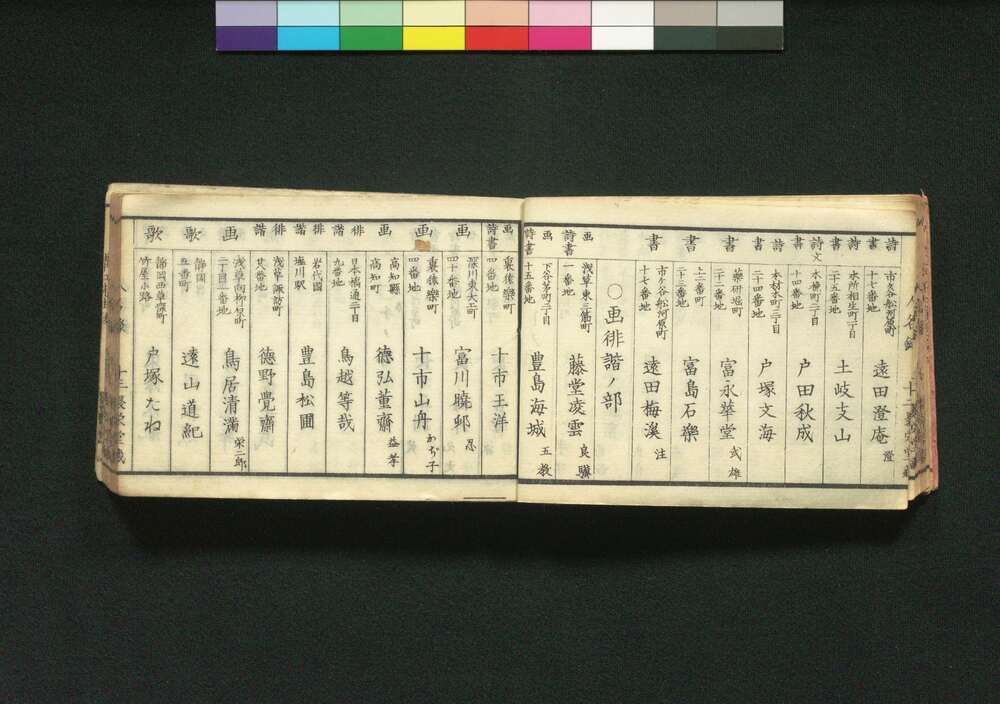 詩書 市ヶ谷舩河原町十七番地 遠田澄庵 澄
詩書 本所相生町二丁目二十五番地 土岐支山
詩文書 木挽町二丁目十四番地 戸田秋成
詩書 本材木町三丁目二十四番地 戸塚文海
書 薬研堀町二十二番地 富永華堂 武雄
書 上二番町二十三番地 富島石樂
書 市ヶ谷舩河原町十七番地 遠田梅溪 注
〇画俳諧ノ部
画詩書 浅草東三筋町一番地 藤堂凌雲 良驥
画詩書 下谷茅町二丁目十五番地 豊島海城 五教
画詩書 裏猿樂町四番地 十市王洋
画 深川東大工町四十番地 富川曉邨 忍
画 裏猿樂町四番地 十市山丹 わぢ子
画 高知縣高知町 德弘董齋 益孝
俳諧 日本橋通二丁目九番地 鳥越等哉
俳諧 岩代國塩川駅 豊島松圃
俳諧 浅草諏訪町廿番地 德野覺齋
画 浅草向柳原町二丁目二番地 鳥居清滿 榮二郎
歌 静岡五番町 遠山道紀
歌 静岡西草深町竹屋小路 戸塚たね